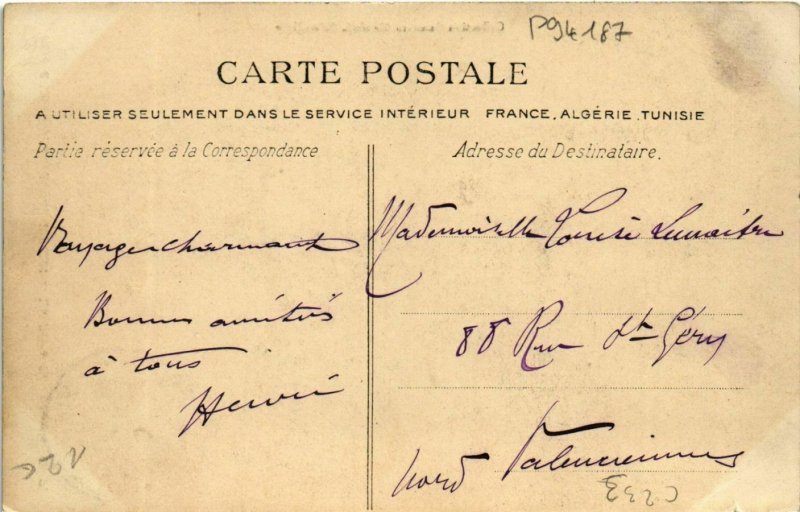 P94.187
CARTE POSTALE
A UTILISER SEULEMENT DANS LE SERVICE INTÉRIEUR FRANCE, ALGÉRIE, TUNISIE
Partie réservée à la Correspondance
Adresse du Destinataire.
Voyage charmant
Bonnes amitiés
à tous
Henri
Mademoiselle Louise Lemaître
88 Rue St Géry
Valenciennes
Nord
C233